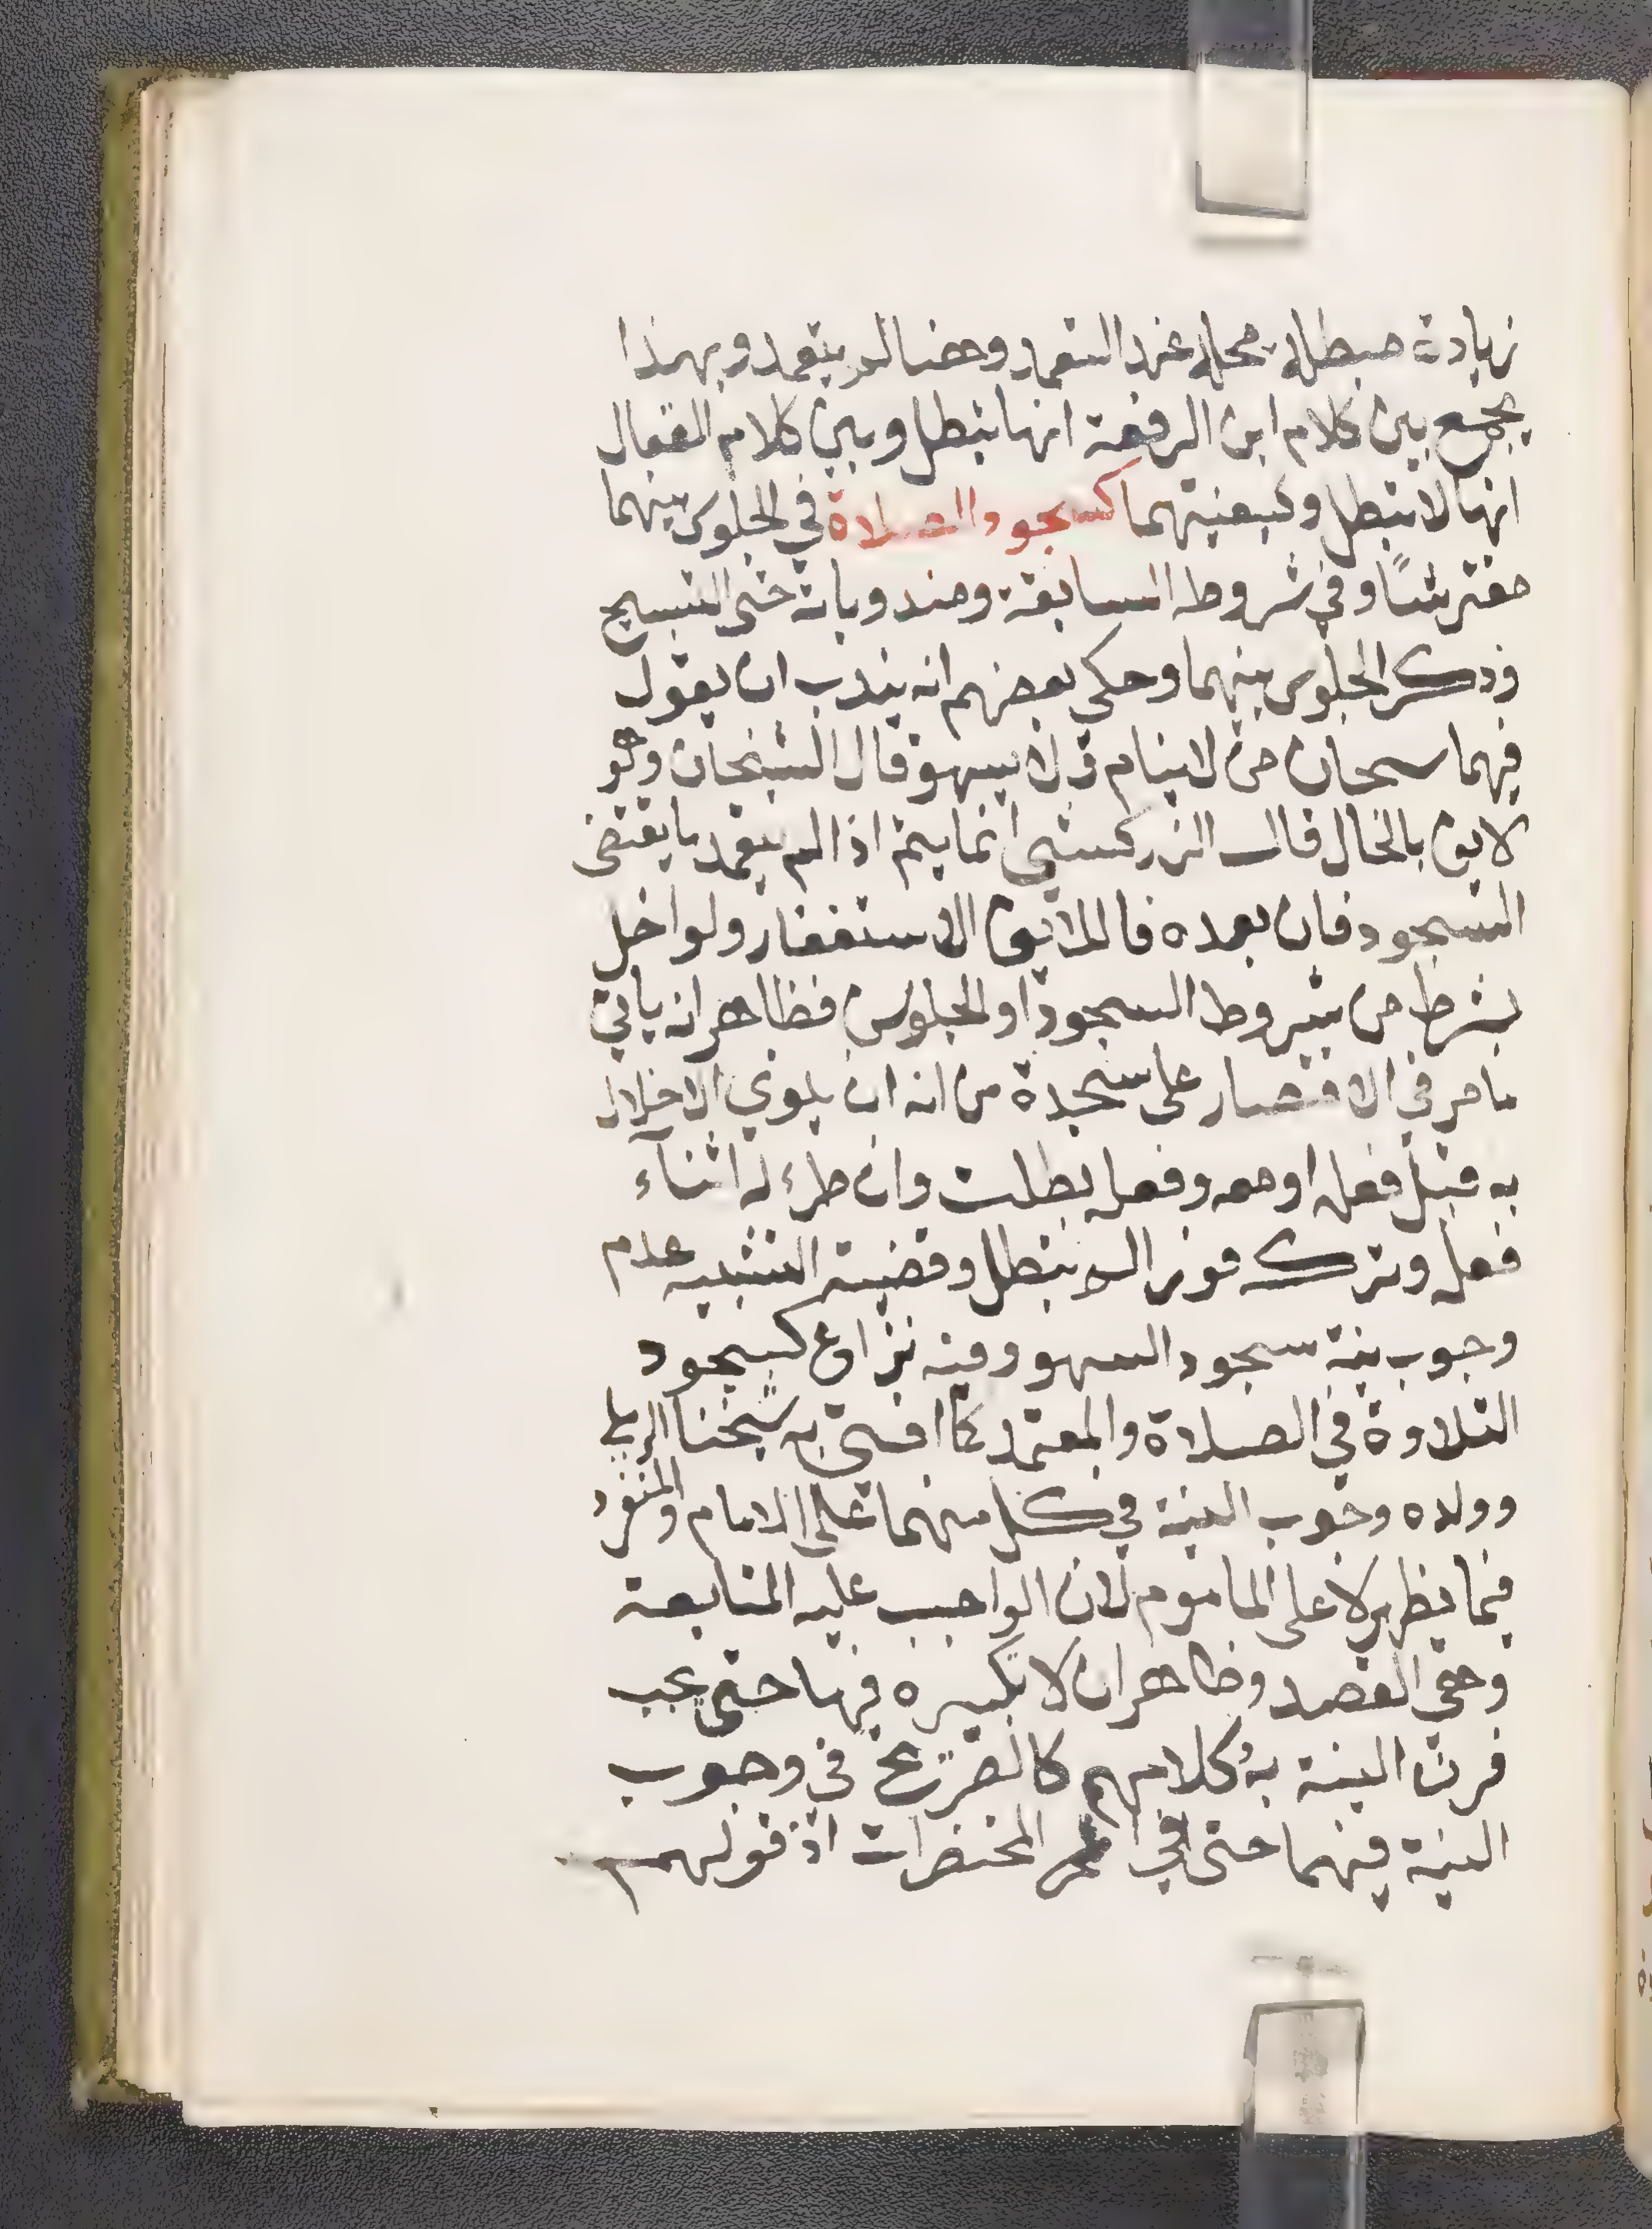 زيادة مبطلة محله عند التعمد وهنا لم يتعمد وبهذا
يجمع بين كلام ابن الرفعة انها تبطل وبين كلام القفال
انها لا تبطل وكيفيتهما كسجود الصلاة في الجلوس بينهما
مفترشًا وفي شروطه السابقة ومندوباته حتى التسبيح
وذكر الجلوس بينهما وحكي بعضهم انه يندب ان يقول
فيهما سبحان من لا ينام ولا يسهو قال الشيخان وهو
لايق بالحال قال الزركشي انما يتم اذا لم يتعمد ما يقتضى
السجود فان تعمده فاللايق الاستغفار ولو اخل
بشرط من شروط السجود او الجلوس فظاهر انه ياتي
ما مر في الاقتصار على سجدة من انه ان نوى الاخلال
به قبل فعله او معه وفعله بطلت وان طرء له اثناء
فعله وتركه فورا لم تبطل وقضية التشبيه عدم
وجوب نية سجود السهو وفيه نزاع كسجود
التلاوة في الصلاة والمعتمد كما افتى به شيخنا الرملي
وولده وجوب النية في كل منهما على الامام والمنفرد
فيما يظهر لا على الماموم لان الواجب عليه المتابعة
وهي القصد وظاهر ان لا تكبيره فيها حتى يجب
قرن النية به كلامهم كالصريح في وجوب
النية فيهما حتى في المختصرات اذ قولهم